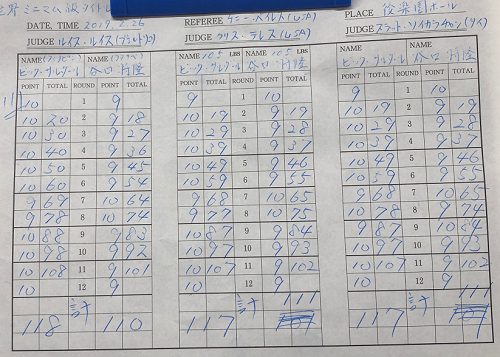 世界ミニマム級タイトル
DATE, TIME 2019.2.26 REFEREE ケニー・ベイレス(USA) PLACE 後楽園ホール
JUDGE ルイス・ルイス(プエルトリコ) JUDGE クリス・テレス(USA) JUDGE スラット・ソイカラチャン(タイ)
NAME NAME NAME 105 LBS NAME 105 LBS NAME NAME
ビック・サルダール 谷口 将隆 ビック・サルダール 谷口 将隆 ビック・サルダール 谷口 将隆
POINT TOTAL ROUND POINT TOTAL POINT TOTAL ROUND POINT TOTAL POINT TOTAL ROUND POINT TOTAL
10 1 9 9 1 10 9 1 10
10 20 2 9 18 10 19 2 9 19 10 19 2 9 19
10 30 3 9 27 10 29 3 9 28 10 29 3 9 28
10 40 4 9 36 10 39 4 9 37 10 39 4 9 37
10 50 5 9 45 10 49 5 9 46 10 49 5 9 46
10 60 6 9 54 10 59 6 9 55 10 59 6 9 55
9 69 7 10 64 9 68 7 10 65 9 68 7 10 65
9 78 8 10 74 9 77 8 10 75 10 78 8 9 74
10 88 9 9 83 10 87 9 9 84 9 87 9 10 84
10 98 10 9 92 10 97 10 9 93 10 97 10 9 93
10 108 11 9 101 10 107 11 9 102 10 107 11 9 102
10 12 9 10 12 9 10 12 9
118 計 110 117 計 111 117 計 111